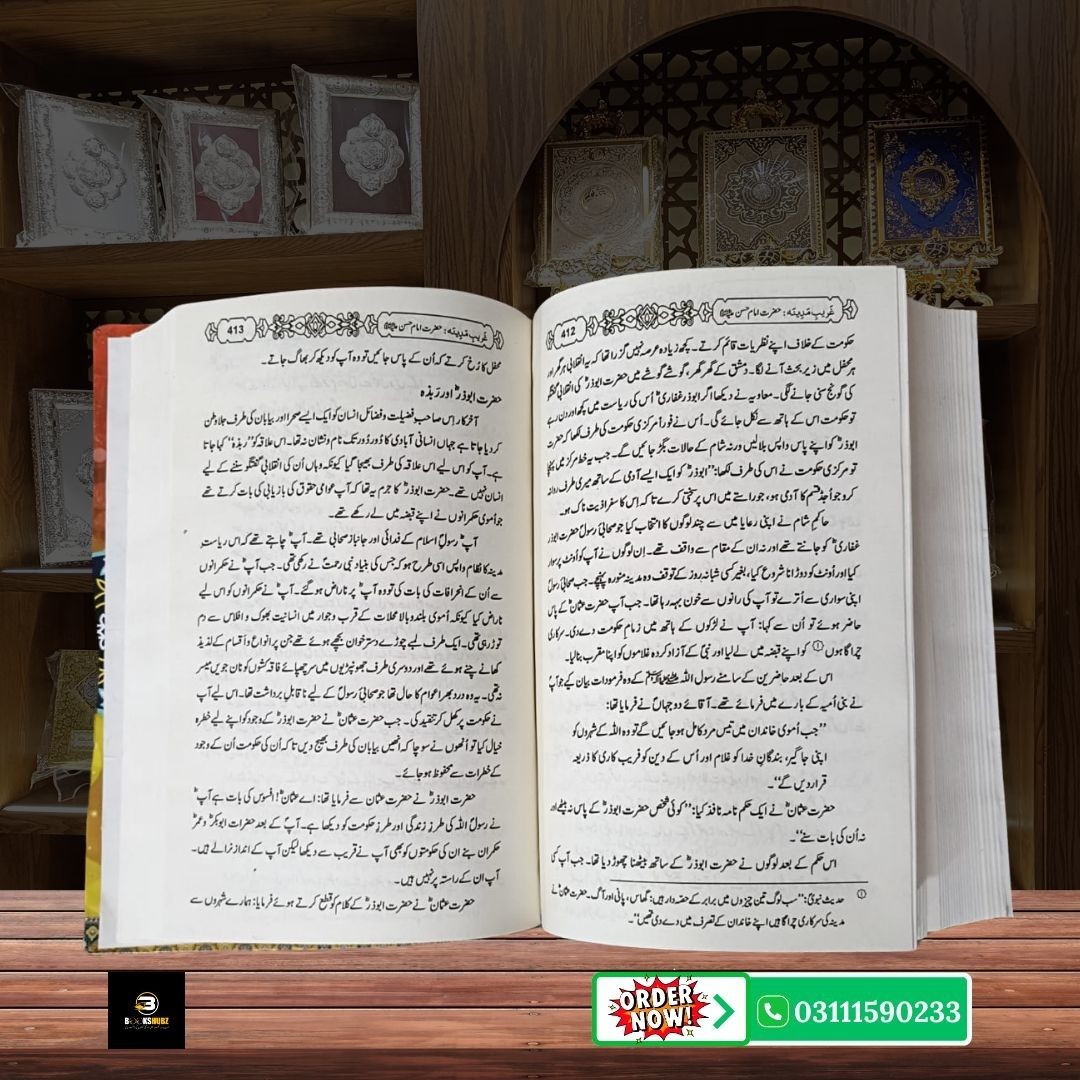 412
غریبِ مَدِینہ: حضرت امام حسن
حکومت کے خلاف اپنے نظریات قائم کرتے۔ کچھ زیادہ عرصہ نہیں گزرا تھا کہ یہ انقلابی ہر گھر اور
ہر محفل میں زیر بحث آنے لگا۔ دمشق کے گھر گھر، گوشے گوشے میں حضرت ابوذرؓ کی انقلابی گفتگو
کی گونج سنی جانے لگی۔ معاویہ نے دیکھا اگر ابوذر غفاریؓ اُس کی ریاست میں کچھ اور دن رہے
تو حکومت اس کے ہاتھ سے نکل جائے گی۔ اُس نے فوراً مرکزی حکومت کی طرف لکھا کہ حضرت
ابوذرؓ کو اپنے پاس واپس بلا لیں ورنہ شام کے حالات بگڑ جائیں گے۔ جب یہ خط مرکز میں پہنچا
تو مرکزی حکومت نے اس کی طرف لکھا: ”ابوذرؓ کو ایک ایسے آدمی کے ساتھ میری طرف روانہ
کرو جو اُجڈ قسم کا آدمی ہو، جو راستے میں اس پر سختی کرے تاکہ اِس کا سفر اذیت ناک ہو۔
حاکمِ شام نے اپنی رعایا میں سے چند لوگوں کا انتخاب کیا جو صحابیٔ رسولؐ حضرت ابوذر
غفاریؓ کو جانتے تھے اور نہ ان کے مقام سے واقف تھے۔ اِن لوگوں نے آپ کو اُونٹ پر سوار
کیا اور اُونٹ کو دوڑانا شروع کیا، بغیر کسی شبانہ روز کے توقف وہ مدینہ منورہ پہنچے۔ جب صحابیٔ رسولؐ
اپنی سواری سے اُترے تو آپ کی رانوں سے خون بہہ رہا تھا۔ جب آپ حضرت عثمانؓ کے پاس
حاضر ہوئے تو اُن سے کہا: آپ نے لڑکوں کے ہاتھ میں زمامِ حکومت دے دی۔ سرکاری
چراگاہوں ① کو اپنے قبضہ میں لے لیا اور نبیؐ کے آزاد کردہ غلاموں کو اپنا مقرب بنا لیا۔
اس کے بعد حاضرین کے سامنے رسول اللہ ﷺ کے وہ فرمودات بیان کیے جو آپؐ
نے بنی اُمیہ کے بارے میں فرمائے تھے۔ آقائے دو جہاںؐ نے فرمایا تھا:
”جب اُموی خاندان میں تیس مرد کامل ہو جائیں گے تو وہ اللہ کے شہروں کو
اپنی جاگیر، بندگانِ خدا کو غلام اور اُس کے دین کو فریب کاری کا ذریعہ
قرار دیں گے“۔
حضرت عثمانؓ نے ایک حکم نامہ نافذ کیا: ”کوئی شخص حضرت ابوذرؓ کے پاس نہ بیٹھے اور
نہ اُن کی بات سنے“۔
اس حکم کے بعد لوگوں نے حضرت ابوذرؓ کے ساتھ بیٹھنا چھوڑ دیا تھا۔ جب آپ کسی
① حدیث نبویؐ: ”سب لوگ تین چیزوں میں برابر کے حصہ دار ہیں: گھاس، پانی اور آگ۔ حضرت عثمانؓ نے
مدینہ کی سرکاری چراگاہیں اپنے خاندان کے تصرف میں دے دی تھیں“۔
413
غریبِ مَدِینہ: حضرت امام حسن
محفل کا رُخ کرتے کہ اُن کے پاس جائیں تو وہ آپ کو دیکھ کر بھاگ جاتے۔
حضرت ابوذرؓ اور رَبذہ
آخرکار اِس صاحبِ فضیلت و فضائل انسان کو ایک ایسے صحرا اور بیابان کی طرف جلا وطن
کر دیا جاتا ہے جہاں انسانی آبادی کا دُور دُور تک نام و نشان نہ تھا۔ اس علاقہ کو ”ربذہ“ کہا جاتا
ہے۔ آپ کو اس لیے اس علاقہ کی طرف بھیجا گیا کیونکہ وہاں اُن کی انقلابی گفتگو سننے کے لیے
انسان نہیں تھے۔ حضرت ابوذرؓ کا جرم یہ تھا کہ آپ عوامی حقوق کی بازیابی کی بات کرتے تھے
جو اُموی حکمرانوں نے اپنے قبضہ میں لے رکھے تھے۔
آپؓ رسولِ اسلام کے فدائی اور جانباز صحابی تھے۔ آپؓ چاہتے تھے کہ اس ریاستِ
مدینہ کا نظام واپس اسی طرح ہو کہ جس کی بنیاد نبی رحمتؐ نے رکھی تھی۔ جب آپؓ نے حکمرانوں
سے اُن کے انحرافات کی بات کی تو وہ آپؓ پر ناراض ہو گئے۔ آپؓ نے حکمرانوں کو اس لیے
ناراض کیا کیونکہ اُموی بلند و بالا محلات کے قرب و جوار میں انسانیت بھوک و افلاس سے دم
توڑ رہی تھی۔ ایک طرف لمبے چوڑے دسترخوان بچھے ہوئے تھے جن پر انواع و اقسام کے لذیذ
کھانے چنے ہوئے تھے اور دوسری طرف جھونپڑیوں میں سر چھپائے فاقہ کشوں کو نانِ جویں میسر
نہ تھی۔ یہ وہ درد بھرا عوام کا حال تھا جو صحابیٔ رسولؐ کے لیے ناقابلِ برداشت تھا۔ اس لیے آپ
نے حکومت پر کھل کر تنقید کی۔ جب حضرت عثمانؓ نے حضرت ابوذرؓ کے وجود کو اپنے لیے خطرہ
خیال کیا تو اُنھوں نے سوچا کہ انھیں بیابان کی طرف بھیج دیں تاکہ اُن کی حکومت اُن کے وجود
کے خطرات سے محفوظ ہو جائے۔
حضرت ابوذرؓ نے حضرت عثمان سے فرمایا تھا: اے عثمانؓ! افسوس کی بات ہے آپؓ
نے رسولؐ اللہ کی طرزِ زندگی اور طرزِ حکومت کو دیکھا ہے۔ آپؐ کے بعد حضرات ابوبکرؓ و عمرؓ
حکمران بنے ان کی حکومتوں کو بھی آپ نے قریب سے دیکھا لیکن آپ کے انداز نرالے ہیں۔
آپ ان کے راستہ پر نہیں ہیں۔
حضرت عثمانؓ نے حضرت ابوذرؓ کے کلام کو قطع کرتے ہوئے فرمایا: ہمارے شہروں سے
BOOKSHUBZ
ORDER
NOW!
03111590233